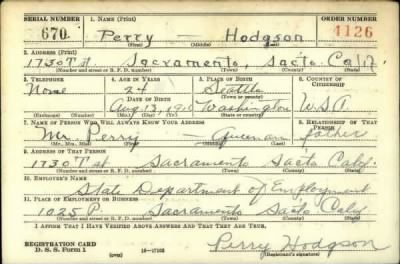 SERIAL NUMBER 1. NAME (Print) ORDER NUMBER
670 Perry — Hodgson 4126
(First) (Middle) (Last)
2. ADDRESS (Print)
1730 T st. Sacramento, Sacto Calif.
(Number and street or R. F. D. number) (Town) (County) (State)
3. TELEPHONE 4. AGE IN YEARS 5. PLACE OF BIRTH 6. COUNTRY OF CITIZENSHIP
None 24 Seattle
DATE OF BIRTH (Town or county)
Aug 13, Washington U.S.A.
(Exchange) (Number) (Mo.) (Day) (Yr.) (State or country)
7. NAME OF PERSON WHO WILL ALWAYS KNOW YOUR ADDRESS 8. RELATIONSHIP OF THAT PERSON
Mr. Perry — father
(Mr., Mrs., Miss) (First) (Middle) (Last)
9. ADDRESS OF THAT PERSON
1730 T st Sacramento Sacto Calif.
(Number and street or R. F. D. number) (Town) (County) (State)
10. EMPLOYER'S NAME
State Department of Employment
11. PLACE OF EMPLOYMENT OR BUSINESS
1025 P. Sacramento Sacto Calif
(Number and street or R. F. D. number) (Town) (County) (State)
I AFFIRM THAT I HAVE VERIFIED ABOVE ANSWERS AND THAT THEY ARE TRUE.
REGISTRATION CARD
D. S. S. Form 1 16—17105 Perry Hodgson
(Registrant's signature)